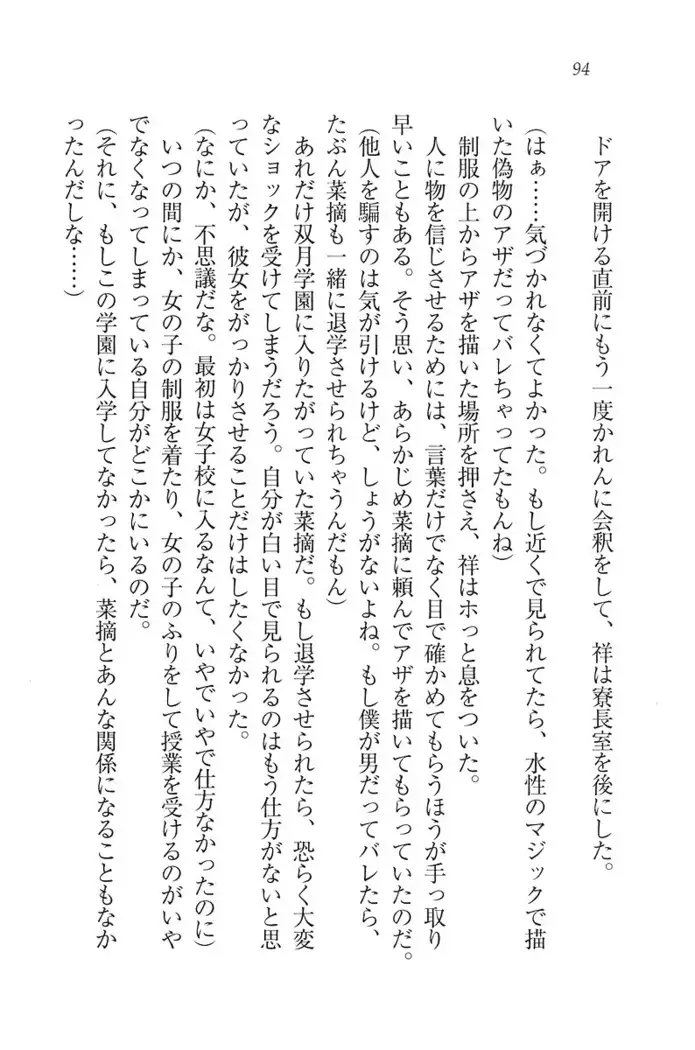 94
ドアを開ける直前にもう一度かれんに会釈をして、祥は寮長室を後にした。
(はぁ……気づかれなくてよかった。もし近くで見られてたら、水性のマジックで描
いた偽物のアザだってバレちゃってたもんね)
制服の上からアザを描いた場所を押さえ、祥はホッと息をついた。
人に物を信じさせるためには、言葉だけでなく目で確かめてもらうほうが手っ取り
早いこともある。そう思い、あらかじめ菜摘に頼んでアザを描いてもらっていたのだ。
(他人を騙すのは気が引けるけど、しょうがないよね。もし僕が男だってバレたら、
たぶん菜摘も一緒に退学させられちゃうんだもん)
あれだけ双月学園に入りたがっていた菜摘だ。もし退学させられたら、恐らく大変
なショックを受けてしまうだろう。自分が白い目で見られるのはもう仕方がないと思
っていたが、彼女をがっかりさせることだけはしたくなかった。
(なにか、不思議だな。最初は女子校に入るなんて、いやでいやで仕方なかったのに)
いつの間にか、女の子の制服を着たり、女の子のふりをして授業を受けるのがいや
でなくなってしまっている自分がどこかにいるのだ。
(それに、もしこの学園に入学してなかったら、菜摘とあんな関係になることもなか
ったんだしな……)